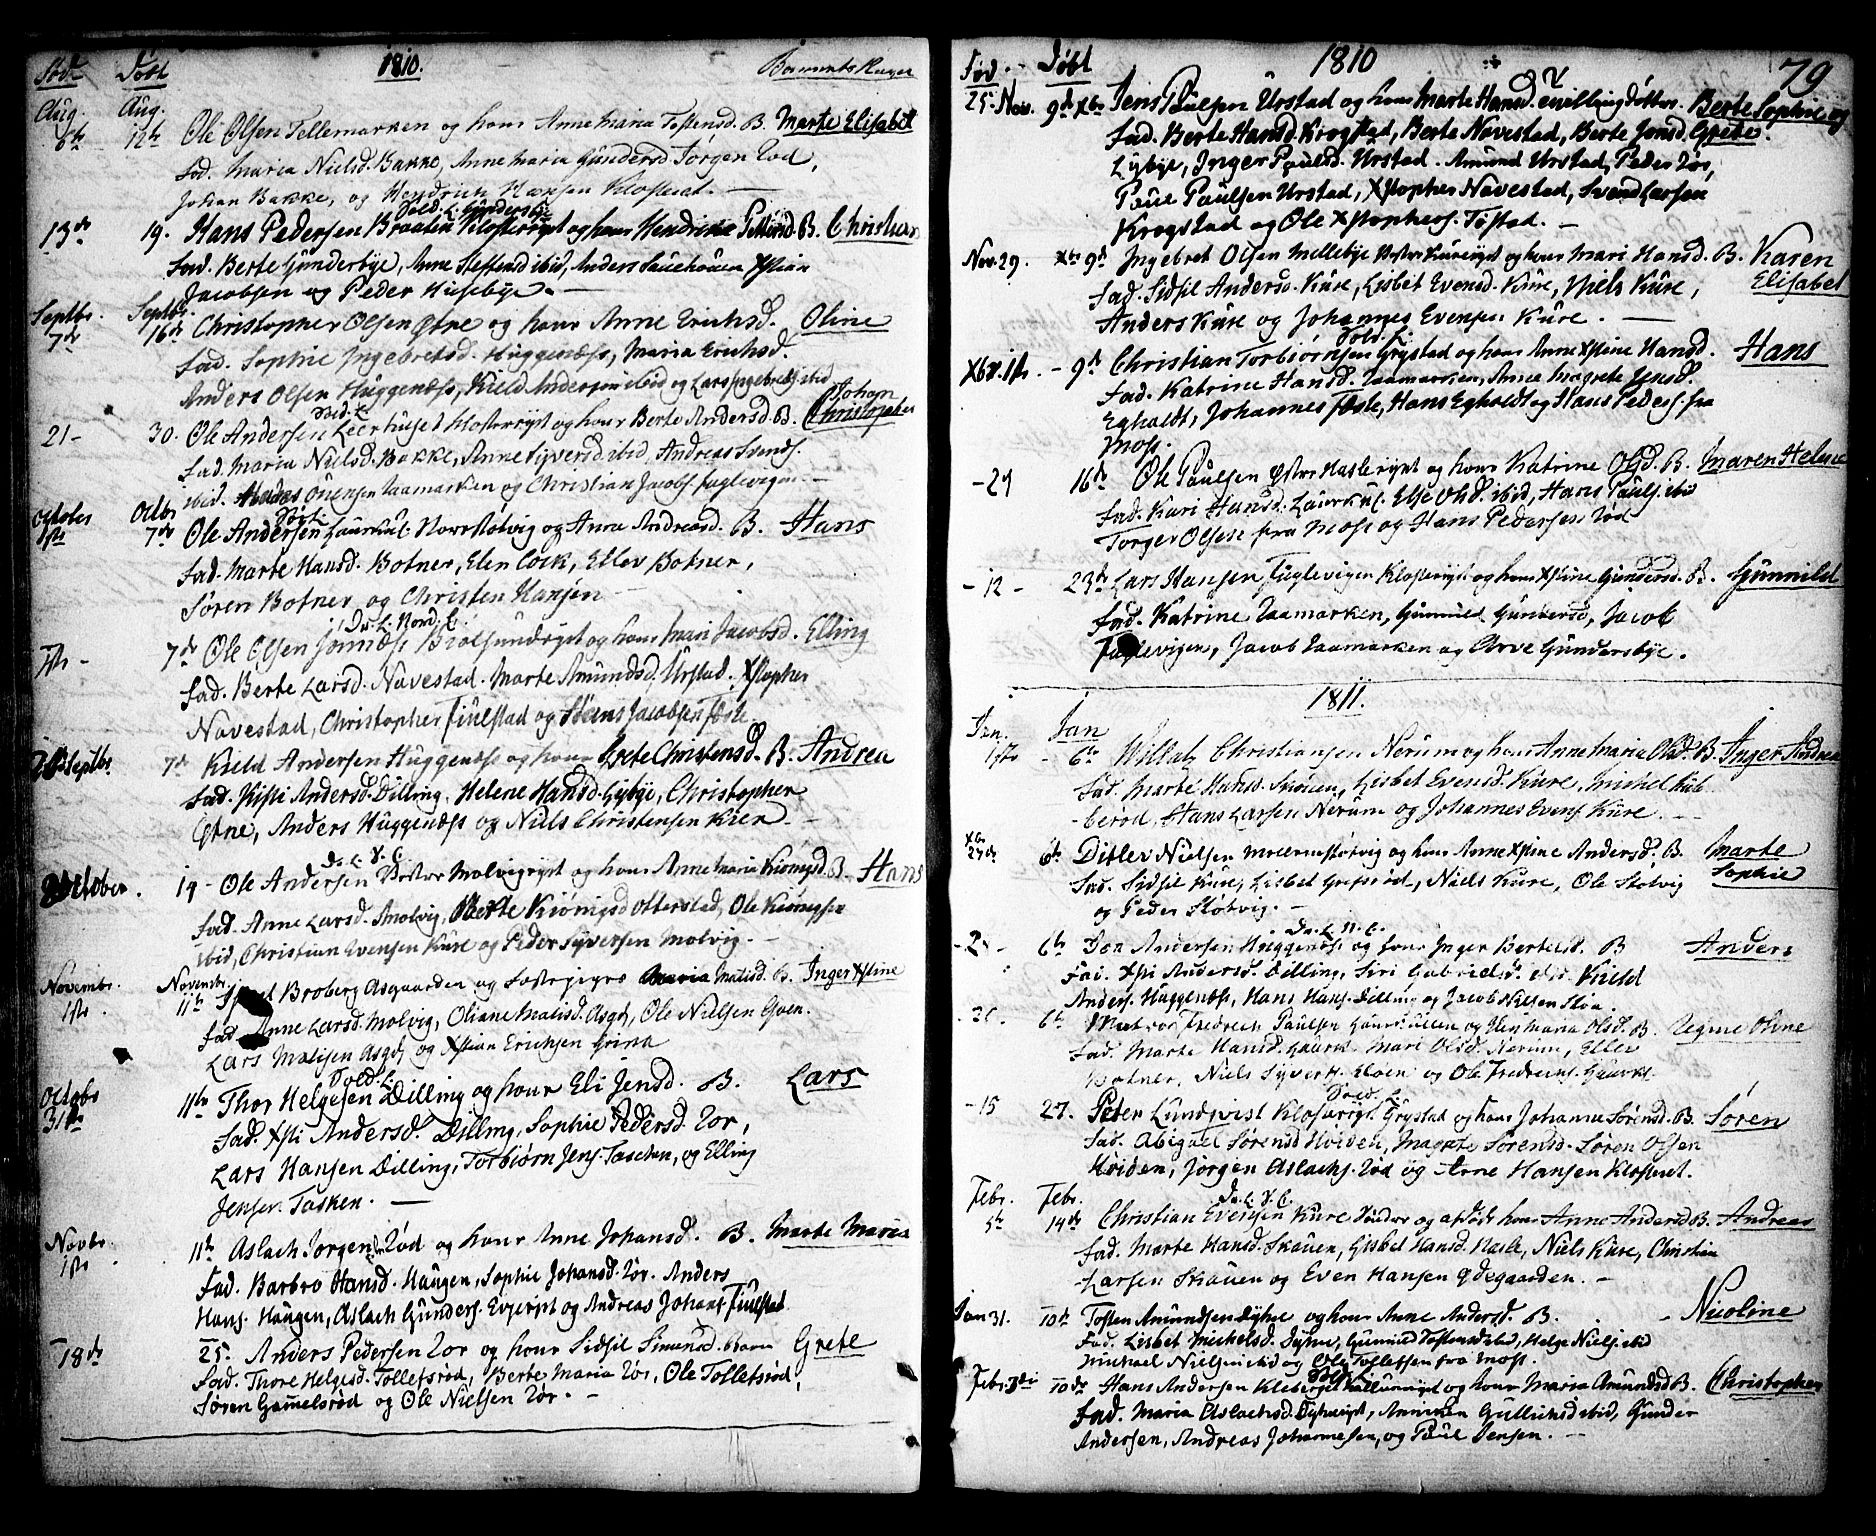 Fød. Døbt 1810.
Aug. Aug.
6te 12te Ole Olsen Tellemarken og hans Anne Maria Tostensd. B. Marte Elisabet
Fad. Maria Nielsd. Bakke, Anne Maria Gundersd. Jørgen Zod,
Johan Bakke, og Hendrich Hansen Klosteret. —
13de 19. Hans Pedersen Braaten Klosterryst og hans Hendrine B. Christian
Fad. Berte Gunderbye, Anne Steffensd ibid, Anders Xstian
Jacobsen og Peder Husebye. —
Septbr. Septbr.
7de 16de Christopher Olsen Øtne og hans Anne Erichsd. Oline
Fad. Sophie Ingebretsd. Huggenæss, Maria Erichsd.
Anders Olsen Huggenæss, Kield Andersen ibid og Lars Ingebretsen ibid
Johan
21 - 30. Ole Andersen Leerhuset Klosterryst og hans Berte Andersd B. Christopher
Fad. Maria Nielsd. Bakke, Anne Syversd ibid, Andreas Svends.
ibid. Laamarken og Christian Jacobs. Fuglevigen —
October Octbr
1ste 7de Ole Andersen Laurkul. Norr Støtvig og Anne Andreasd. B. Hans
Fad. Marte Hansd. Botner, Elen Cock, Eller Botner,
Søren Botner og Christen Hansen —
7de - 7de Ole Olsen og hans Mari Jacobsd. Elling
Fad. Berte Larsd. Navestad. Marte Amundsd. Urstad. Xstopher
Navestad, Christopher Fiulstad og Hans Jacobsen Feste.
Septbr 7d Kield Andersen Huggenæss og hans Berte Christensd. B. Andrea
Fad. Kisti Andersd. Dilling, Helene Hansd. Lybye, Christopher
Øtne, Anders Huggenæss og Niels Christensen Kier. —
October. 14 - Ole Andersen Vestre Molvigryst og hans Anne Maria Kiønigsd B. Hans
Fad. Anne Larsd. Molvig, Berte Kiønigsd Otterstad, Ole Kiønigsen
ibid, Christian Evensen Kure og Peder Syversen Molvig. —
Novembr. Novembr.
1ste 11te Broberg Asgaarden og Festepigen Maria Matisd. B. Inger Xstine
Fad. Anne Larsd. Molvig, Oliane Matisd. Asgd, Ole Nielsen Goen
Lars Matisen Asgd og Xstian Erichsen Grina
Octobr
31te 11te Thor Helgesen Dilling og hans Eli Jensd. B. Lars
Fad. Xsti Andersd. Dilling, Sophie Pedersd. Zor,
Lars Hansen Dilling, Torbiørn Jens. Tasken, og Elling
Jensen Tasken. —
Novbr.
1ste 11te Aslach Jørgens Zod og hans Anne Johansd. B. Marte Maria
Fad. Barbro Hansd. Haugen, Sophie Johansd. Zor. Anders
Hans. Haugen, Aslach Gunders. Evjeryst og Andreas Johans Fiulstad
18de 25. Anders Pedersen Zor og hans Sidsil Simensd. Barn Grete
Fad. Thore Helgesd. Tollefsrød, Berte Maria Zor, Ole Tollefsrød,
Søren Gamelsrød og Ole Nielsen Zor. —
Fød. Døbt 1810 79
25. Nov. 9de Xbr Jens Paulsen Urstad og hans Marte Hansd. Tvilling Døttre. Berte Sophie og
Fad. Berte Hansd. Krogstad, Berte Navestad, Berte Jensd. Grete.
Lybye, Inger Paulsd. Urstad. Amund Urstad, Peder Zor,
Paul Paulsen Urstad, Xstopher Navestad, Svend Larsen
Krogstad og Ole Xstophers. Tostad. —
Nov. 29. Xbr 9d Ingebret Olsen Mellebye Vestre Kureryst og hans Mari Hansd. B. Karen
Fad. Sidsil Andersd. Kure, Lisbet Evensd. Kure, Niels Kure, Elisabet
Anders Kure og Johannes Evensen Kure. —
Xbr. 1ste - 9d Christian Torbiørnsen Grystad og hans Anne Xstine Hansd. Hans
Fad. Katrine Hansd. Laamarken, Anne Magrete Jensd.
Egholdt, Johannes Feste, Hans Egholdt og Hans Peders. fra
Moss.
- 29 16de Ole Paulsen Østre Hasleryst og hans Katrine Olsd. B. Maren Helene
Fad. Kari Hansd. Laurkul. Else Olsd ibid, Hans Pauls. ibid
Torger Olsen fra Moss og Hans Pedersen Zod
- 12 - 23de Lars Hansen, Fuglevigen Klosterryst og hans Xstine Gundersd. B. Gunnild
Fad. Katrine Laamarken, Gunnild Gundersd, Jacob
Fuglevigen, Jacob Laamarken og Arve Gundersbye.
1811.
Jan. Jan
1ste - 6te Christiansen Nerum og hans Anne Maria Olsd. B. Inger Andrea
Fad. Marte Hansd. Skouen, Lisbet Evensd. Kure, Michel Kub-
berød, Hans Larsen Nerum og Johannes Evens. Kure. —
Xbr
27de 6te Ditlev Nielsen Mellem Støtvig og hans Anne Xstine Andersd. B. Marte
Fad. Sidsil Kure, Lisbet Grefsrød, Niels Kure, Ole Støtvig Sophie
og Peder Støtvig. —
6te Jon Andersen Huggenæss og hans Inger Bertelsd. B Anders
Fad. Xsti Andersd. Dilling, Siri Gabrielsd. ibid. Kield
Anders. Huggenæss, Hans Hans. Dilling og Jacob Nielsen
6te Fredrich Paulsen Laurkullen og Maria Olsd. B. Regine Oline
Fad. Marte Hansd. Laurk. Mari Olsd. Nerum, Eller
Botner, Niels Syverts. Eloen og Ole Fredrichs. Laurkl.
- 15 27. Peter Lundqvist Klosterryst Grystad og hans Johanne Sørensd. B. Søren
Fad. Abigael Sørensd Høiden, Magrete Sørensd. Søren Olsen
Høiden, Jørgen Aslachs. Zod og Arne Hansen Klosteret.
Febr. Febr.
5te 14de Christian Evensen Kure Søndre og hans Anne Andersd B. Andreas
Fad. Marte Hansd. Skouen, Lisbet Hansd. Hasle, Niels Kure, Christian
Larsen Skouen og Even Hansen Ødegaarden. —
Jan 31. 10de Tosten Amundsen Dyhre og hans Anne Andersd. B. Nicoline
Fad. Lisbet Michelsd. Dyhre, Gunnild Tostensd ibid, Helge Niels. ibid
Michael Nielsen ibid og Ole Tollefsen fra Moss.
Febr 3die 10de Hans Andersen Kleberget Kallumryst og hans Maria Amundsd B. Christopher
Fad. Maria Aslachsd. Dyhreryst, Anniken Gullichsd ibid, Gunder
Andersen, Andreas Johannesen, og Paul Jensen. —